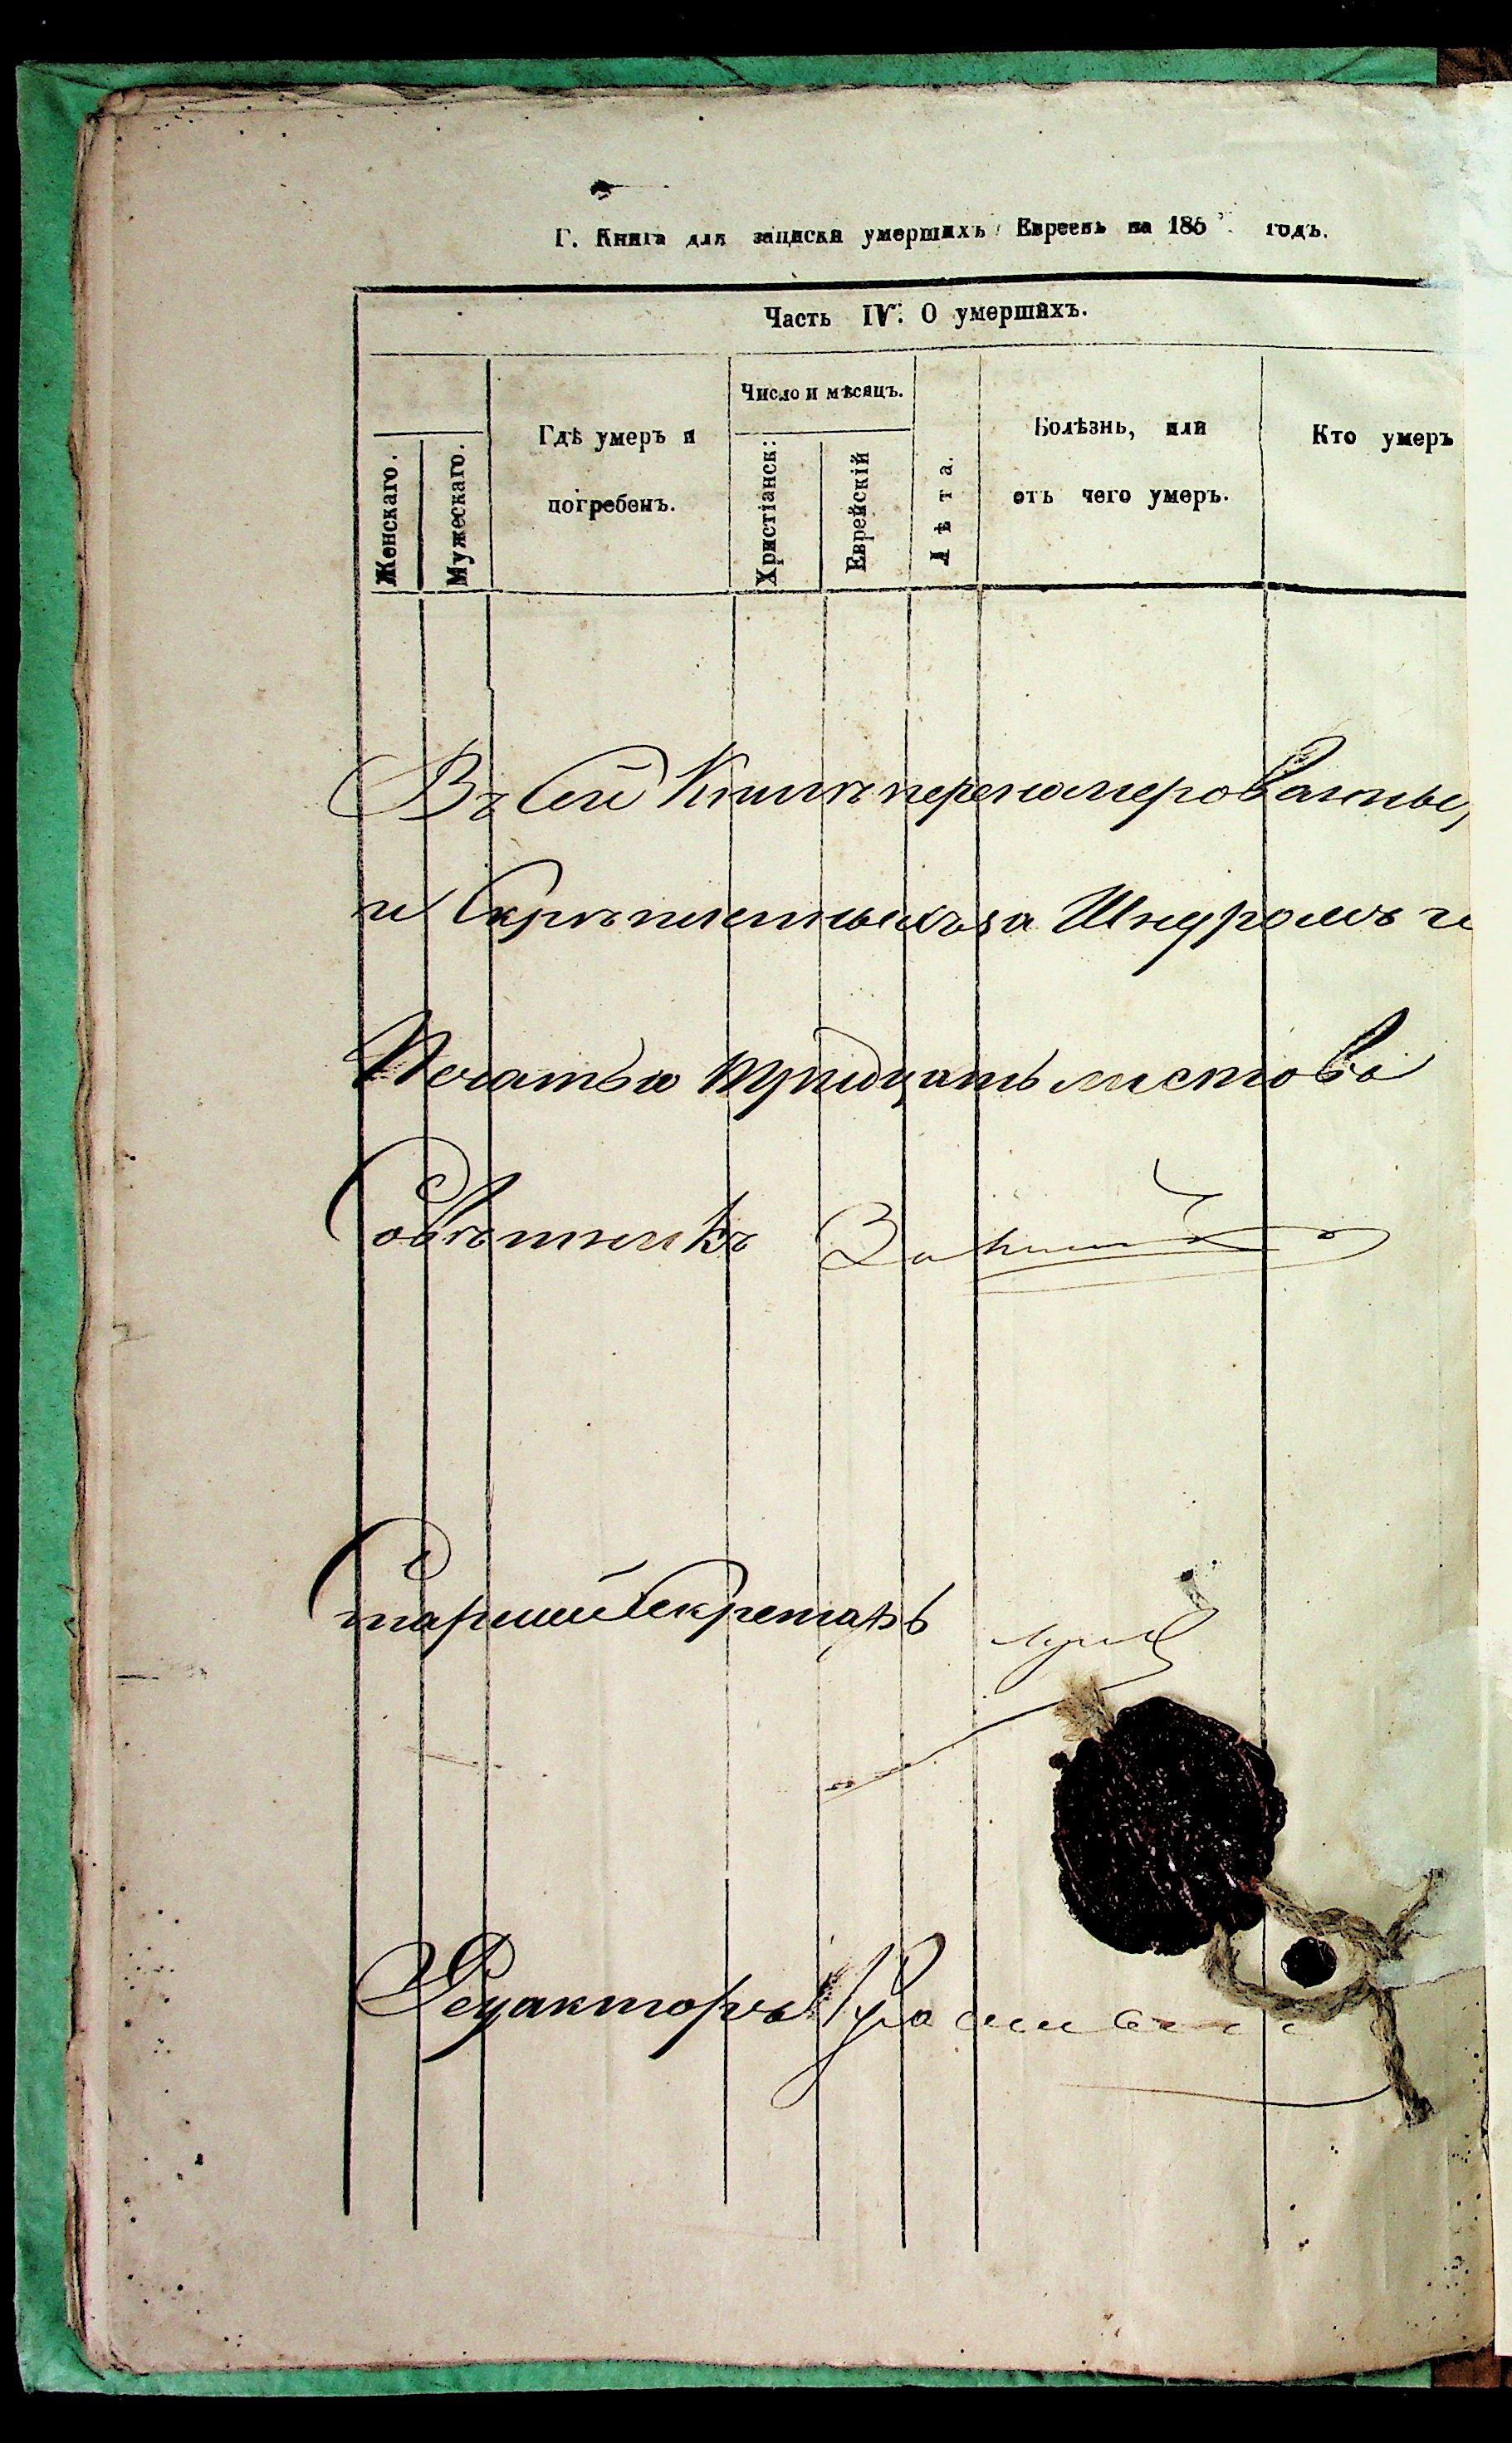 Г. Книга для записки умершихъ Евреевъ на 185 годъ.
Часть IV. О умершихъ.
Женскаго.
Мужескаго.
Гдѣ умеръ и
погребенъ.
Число и мѣсяцъ.
Христіанск:
Еврейскій
Лѣта.
Болѣзнь, или
отъ чего умеръ.
Кто умеръ
Въ Сей Книгѣ переномерованные,
и Скрѣпленныхъ за Шнуромъ и
Печатью тридцать листовъ
Совѣтникъ
Старшій Секретарь
Редакторъ